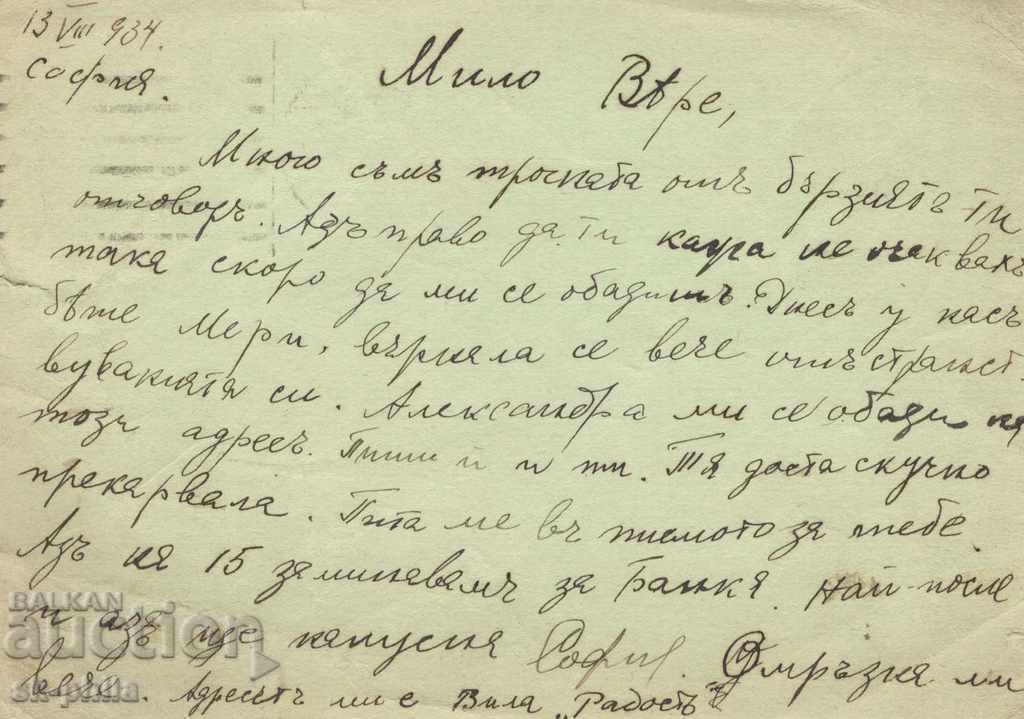 13 VIII 934.
София.
Мило Вѣре,
Много съмъ трогната отъ бързиятъ ти
отговоръ. Азъ право да ти кажа не очаквахъ
така скоро да ми се обадишъ. Днесъ у насъ
бѣше Мери, върнала се вече отъ странст-
вуванията си. Александра ми се обади на
този адресъ. Пиши ѝ и ти. Тя доста скучно
прекарвала. Пита ме въ писмото за тебе.
Азъ на 15 заминавамъ за Банкя. Най-после
и азъ ще напусна София. Омръзна ми
вече. Адресътъ ми е Вила „Радость"
BALKAN
auction
sk-phila